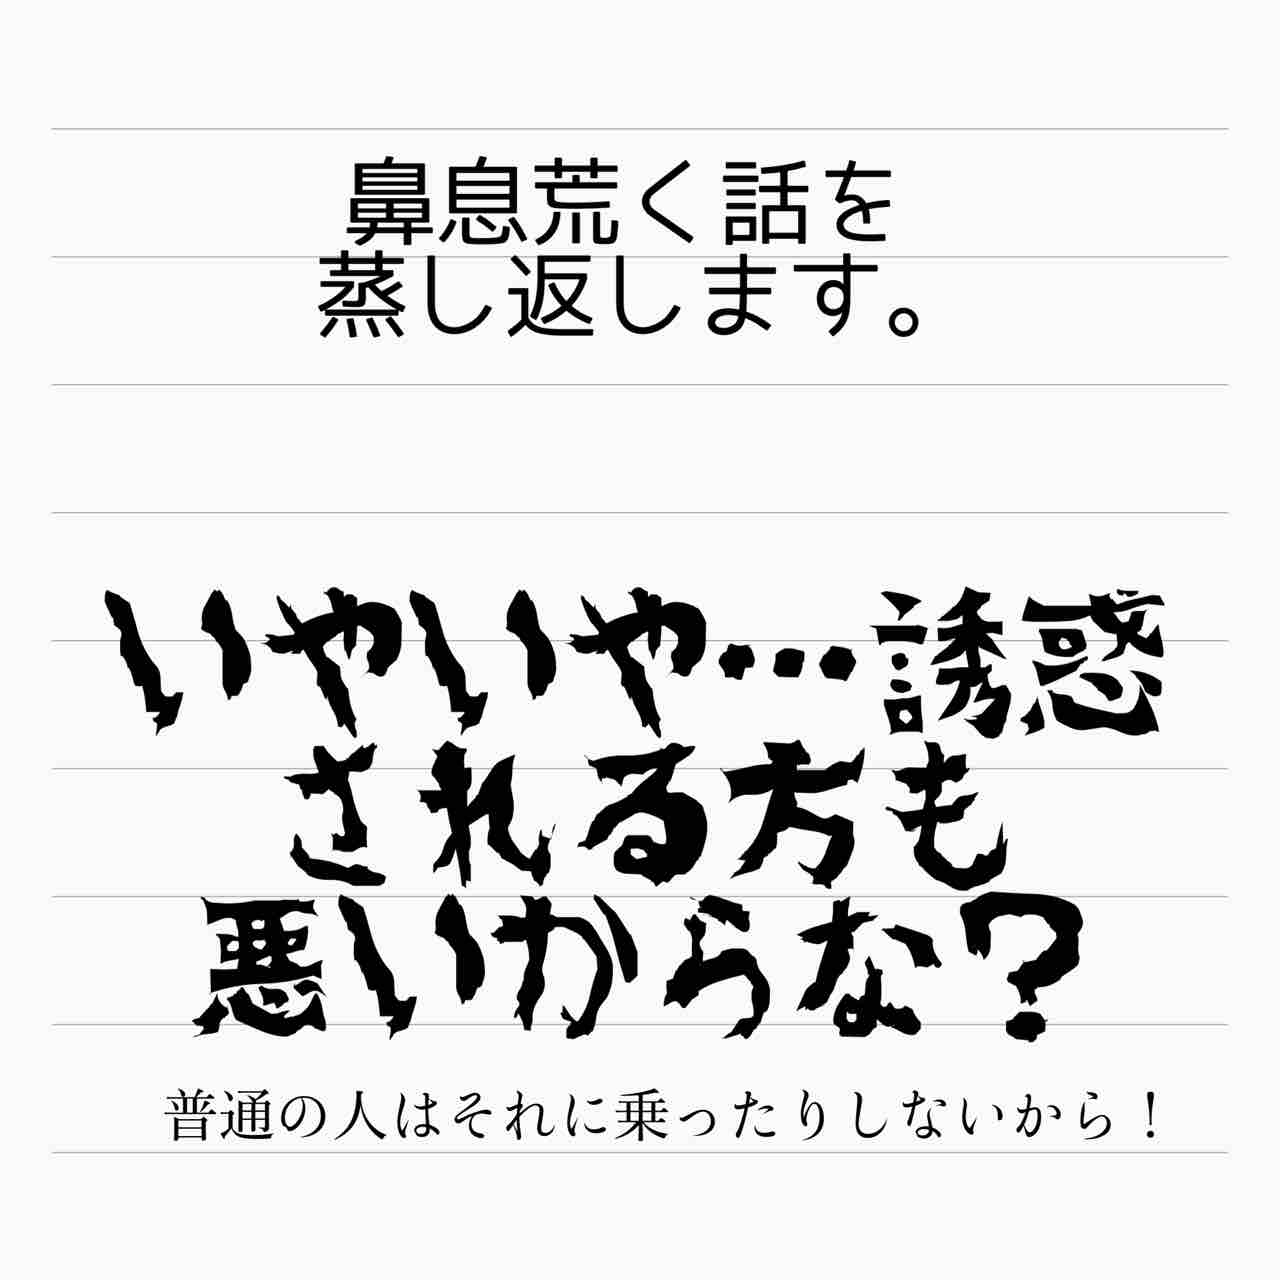 鼻息荒く話を
蒸し返します。
いやいや…誘惑
される方も
悪いからな？
普通の人はそれに乗ったりしないから！